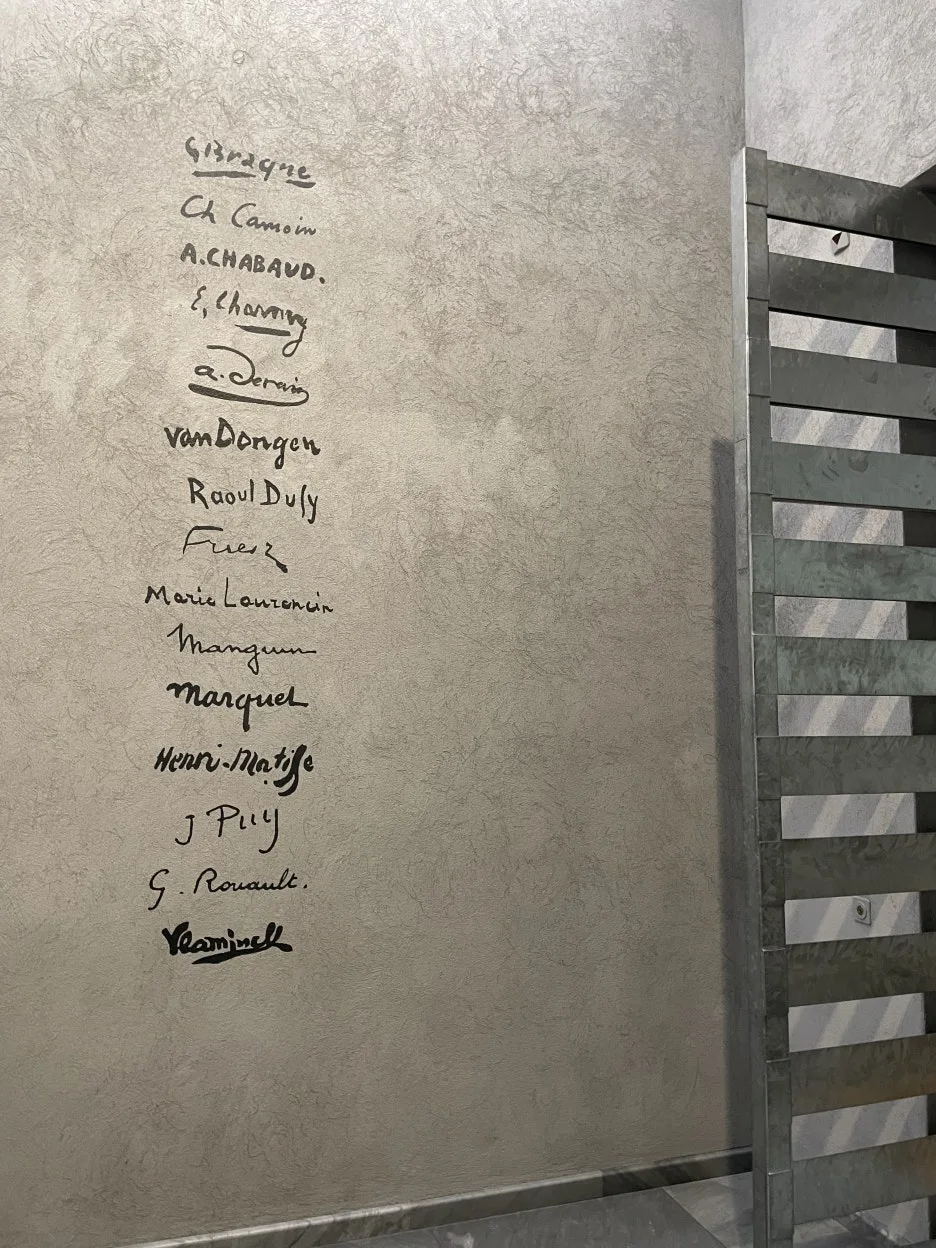 G Braque
Ch Camoin
A. CHABAUD.
E. Charmy
a. derain
van Dongen
Raoul Dufy
Friesz
Marie Laurencin
Manguin
marquet
Henri-Matisse
J Puy
G. Rouault.
Vlaminck